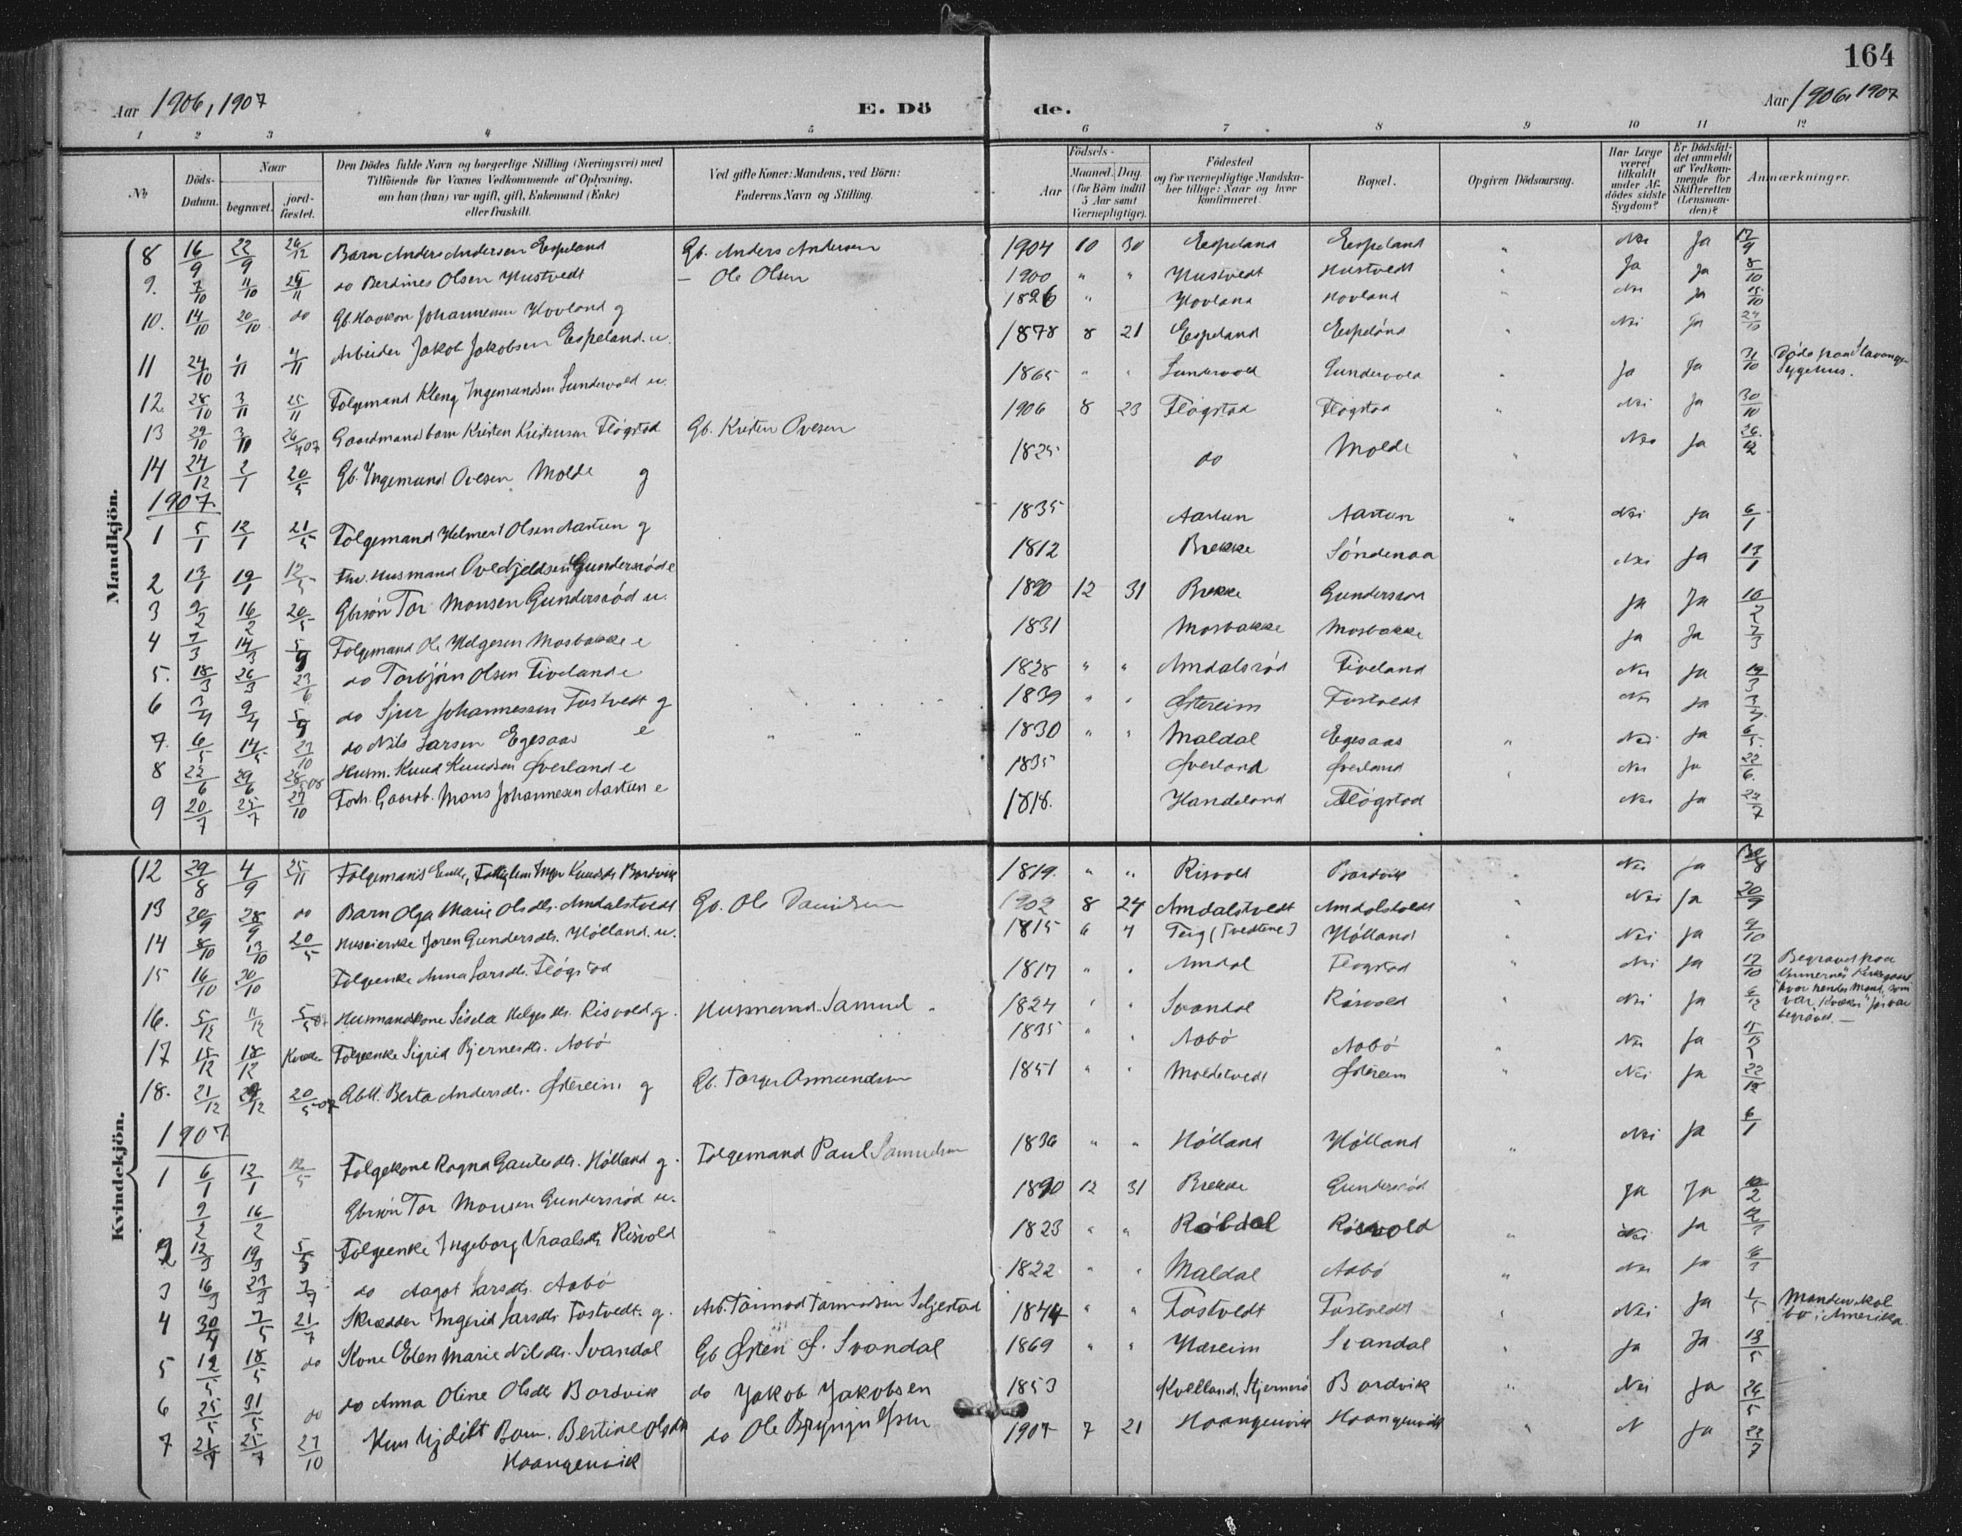 164
Aar 1906, 1907 E. Dö de. Aar 1906, 1907
1 2 3 4 5 6 7 8 9 10 11 12
№ Döds-Datum. Naar begravet. jordfæstet. Den Dödes fulde Navn og borgerlige Stilling (Næringsvei) med Tilföiende for Voxnes Vedkommende af Oplysning, om han (hun) var ugift, gift, Enkemand (Enke) eller fraskilt. Ved gifte Koner: Mandens, ved Börn: Faderens Navn og Stilling. Födsels- Aar Maaned. Dag. (for Börn indtil 5 Aar samt Værnepligtige). Födested og for værnepligtige Mandskaber tillige: Naar og hvor konfirmeret. Bopæl. Opgiven Dödsaarsag. Har Læge været tilkaldt under Afdödes sidste Sygdom? Er Dödsfaldet anmeldt af Vedkommende for Skifteretten (Lensmanden)? Anmærkninger.
Mandkjön.
8 16/9 22/9 26/12 Barn Anders Andersen Espeland Gb. Anders Andersen 1904 10 30 Espeland Espeland " Nei Ja 17/9
9. 7/10 11/10 do Berdines Olsen Hustvedt — Ole Olsen 1900 " " Hustvedt Hustvedt " Ja Ja 8/10
10. 14/10 20/10 do Gb. Haakon Johannessen Hovland g 1826 " Hovland Hovland Nei Ja 15/10
11 24/10 Arbeider Jakob Jakobsen Espeland u. 1878 8 21 Espeland Espeland " Nei Ja
12. 28/10 3/11 25/11 Folgemand Kleng Ingemundsen Sundervold u. 1865 " " Sundervold Sundervold " Ja Ja 31/10 Döde paa Stavanger Sygehus.
13 29/10 3/11 Gaardmandsbarn Kristen Kristensen Flögstad Gb. Kristen Ovesen 1906 8 23 Flögstad Flögstad " Nei Ja 30/10
14 24/12 2/1 20/5 Gb. Ingemund Ovesen Molde g 1825 do Molde " Nei Ja 26/12
1907
1 5/1 12/1 21/5 Folgemand Helmert Olsen Aartun g 1835 Aartun Aartun " Nei Ja 6/1
2 13/1 19/1 12/5 Husmand Ove Njeldsen Gundersröd e 1812 Brekke Söndenaa Nei Ja 13/1
3 9/2 16/2 20/5 Gbrsön Tor Monsen Gundersröd u. 1890 12 31 Brekke Gundersröd Ja Ja 10/2
4 7/3 14/3 5/9 Folgemand Ole Helgesen Mosbakke e 1831 Mosbakke Mosbakke Ja Ja 7/3
5. 18/3 26/3 23/6 do Torbjörn Olsen Tiveland e 1828 " " Amdalsröd Tiveland Nei Ja 19/3
6 3/4 9/4 5/9 do Sjur Johannessen Tostvedt g 1839 " " Östereim Tostvedt Nei Ja
7. 6/5 14/5 27/10 do Nils Larsen Egesaas e 1830 " " Maldal Egesaas " Nei Ja 6/5.
8 22/6 29/6 Husm. Knud Knudsen Överland e 1835 Överland Överland Nei Ja 22/6.
9 20/7 25/7 27/10 Gaardb. Mons Johannessen Aartun e 1818. Handeland Flögstad Nei Ja 27/7
Kvindekjön.
12 29/8 4/9 25/11 Folgemands Enke, Inger Knudsdtr Bordvik 1819. " " Risvold Bordvik Nei Ja
13 20/9 28/9 do Barn Olga Marie Olsdtr. Amdalstvedt Gb. Ole Danielsen 1902 8 24 Amdalstvedt Amdalstvedt " Nei Ja 20/9
14 8/10 13/10 20/5 Joren Gundersdtr. Hölland. u. 1815 6 7 Teig (Tvedtene) Hölland Nei Ja 9/10
15 16/10 20/10 Folgeenke Anna Larsdtr. Flögstad 1817 " " Amdal Flögstad " Nei Ja 17/10 Begravet paa Kirkegaard hvor hendes Mand, som var "Kvæker" för var begravet. —
16. 5/12 11/12 Husmandskone Sisela Helgesdtr. Risvold. g. Husmand Samuel 1824 " " Svandal Risvold " Nei Ja 6/12
17 15/12 18/12 Kvæker Folgeenke Sigrid Bjernesdtr. Aabö 1835 " " Aabö Aabö " Nei Ja
18. 21/12 29/12 20/5 07 Gbk. Berta Andersdtr. Östereim g Gb. Torger Asmundsen 1851 " " Moldetvedt Östereim " Nei Ja 22/12
1907
1 6/1 12/1 12/5 Folgekone Ragna Gautesdtr. Hölland g. Folgemand Paul Samuelsen 1836 " " Hölland Hölland " Nei Ja 6/1
9/2 16/2 Gbrsön Tor Monsen Gundersröd u. 1890 12 31 Brekke Gundersröd Ja Ja 10/2
2 12/3 19/3 5/9 Folgeenke Ingeborg Vraalsdtr. Risvold " 1823 " " Röldal Risvold " Nei Ja
3 16/3 23/3 do Aagot Larsdtr. Aabö 1822. " " Maldal Aabö " Nei Ja
4 30/4 7/5 21/7 Skrædder Ingerid Larsdtr Tostvedt. g. Arb. Tarmod Tarmodsen Seljestad 1844 " " Tostvedt Tostvedt " Nei Ja 1/5 Manden skal bo i Amerika
5 12/5 18/5 do Kone Elen Marie Nilsdtr. Svandal Gb Östen Ö. Svandal 1869 " " Næreim Svandal Ja Ja 13/5
6 25/5 31/5 do do Anna Oline Olsdtr Bordvik do Jakob Jakobsen 1853 Kvelland, Hjernerö Bordvik " Nei Ja 26/5
7 21/7 25/7 27/10 Kun hjdöbt Barn. Bertine Olsdtr do Ole Brynjulfsen 1907 7 21 Haangenvik Haangenvik " N Ja 22/7
Haangenvik